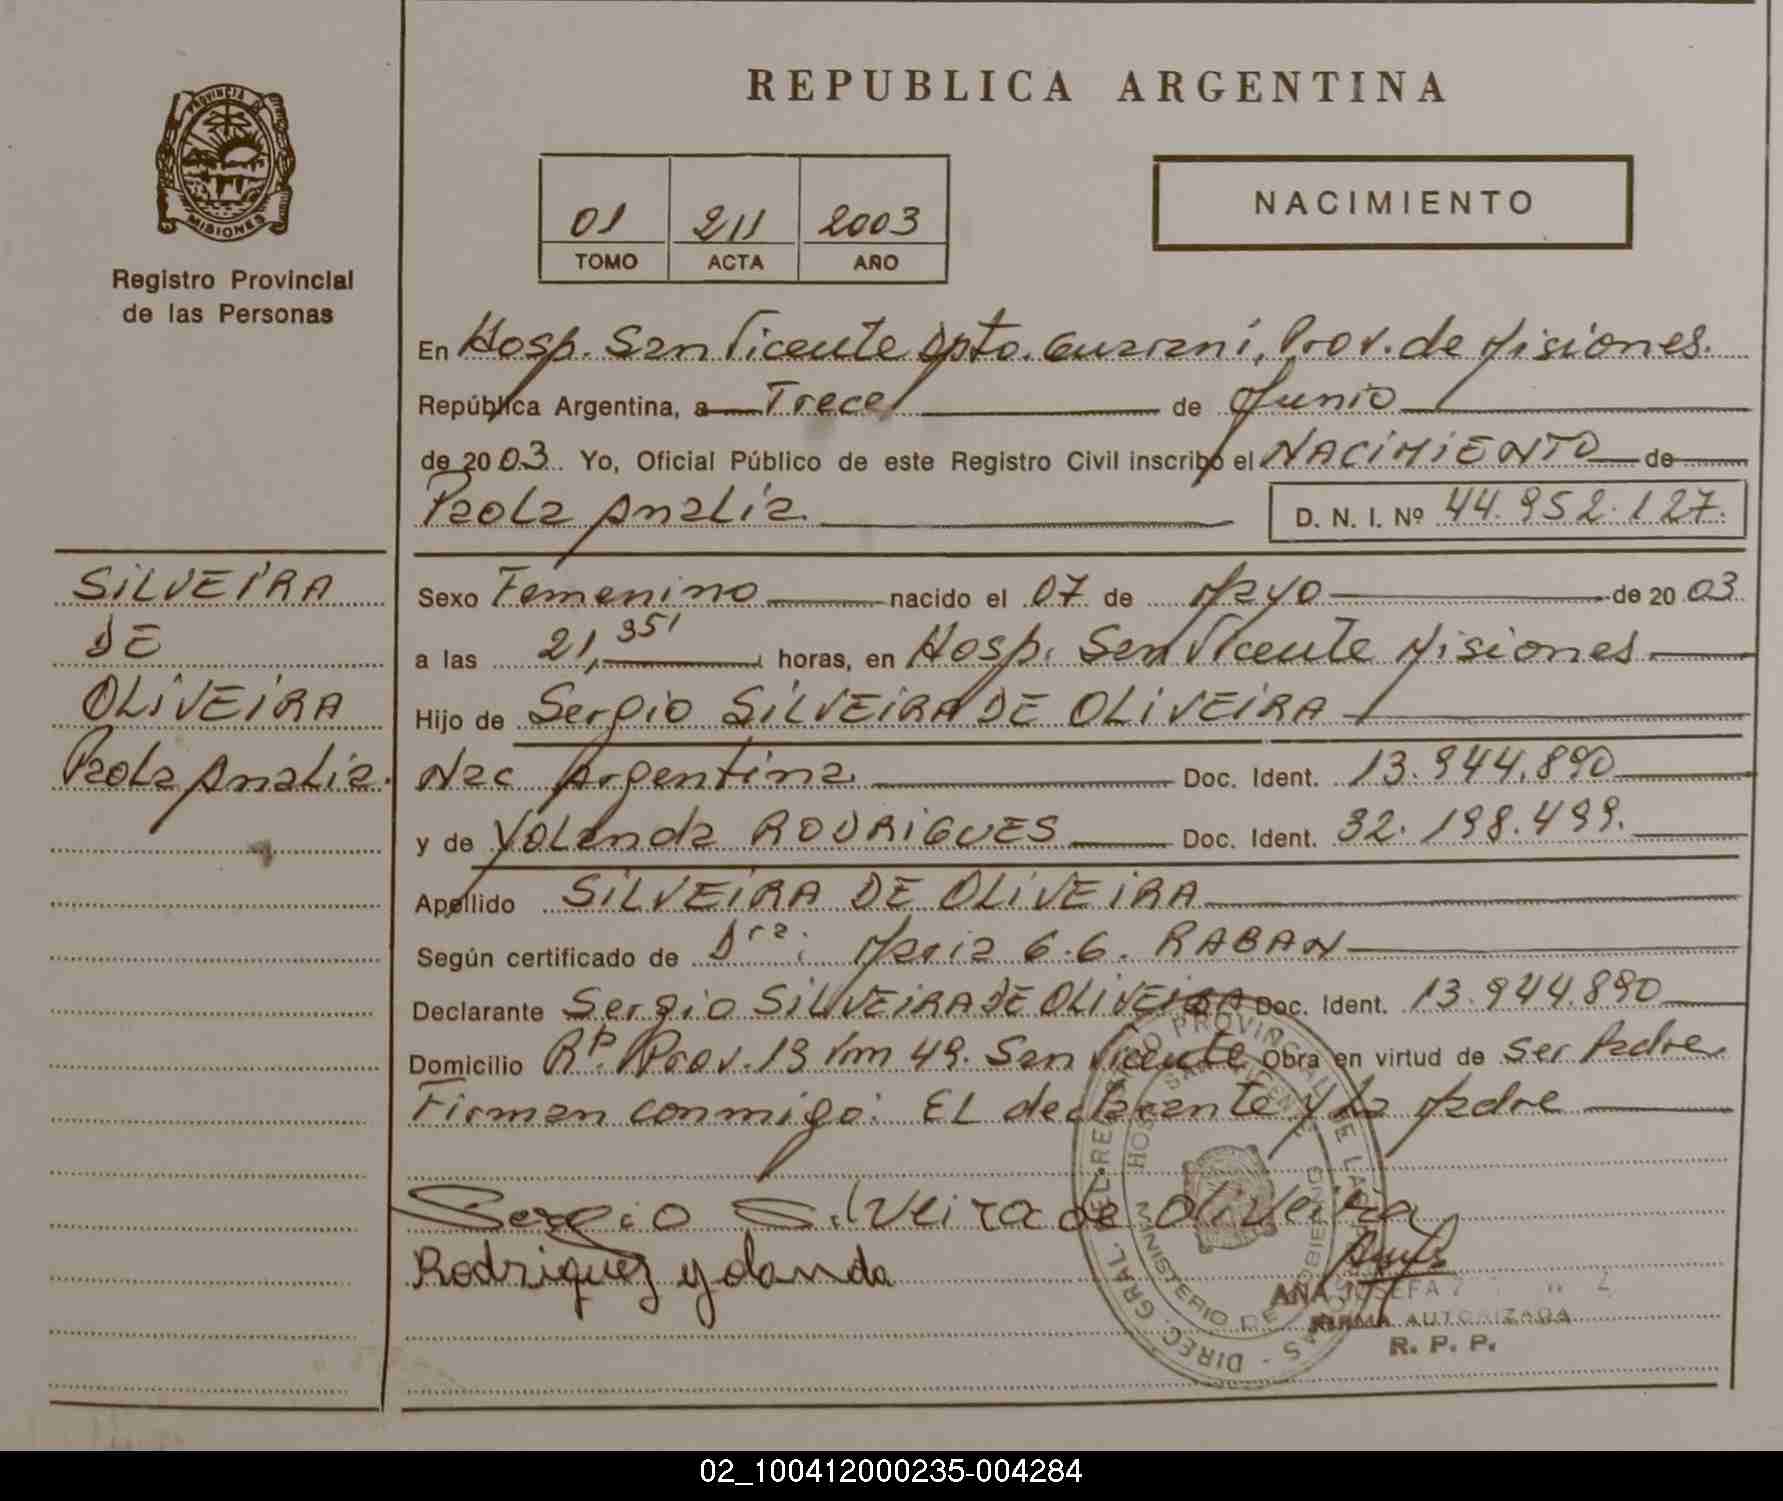 REPUBLICA ARGENTINA
PROVINCIA DE
MISIONES
Registro Provincial
de las Personas
01 211 2003
TOMO ACTA AÑO
NACIMIENTO
En Hosp. San Vicente Dpto. Guarani, Prov. de Misiones.
República Argentina, a Trece de Junio
de 2003. Yo, Oficial Público de este Registro Civil inscribo el NACIMIENTO de
Paola Analia D. N. I. Nº 44.952.127.
SILVEIRA
DE
OLIVEIRA
Paola Analia.
Sexo Femenino nacido el 07 de Mayo de 2003
a las 21,35' horas, en Hosp. San Vicente Misiones
Hijo de Sergio SILVEIRA DE OLIVEIRA
Nac Argentina. Doc. Ident. 13.944.890
y de Yolanda RODRIGUES Doc. Ident. 32.198.499.
Apellido SILVEIRA DE OLIVEIRA
Según certificado de Dra: Maria G.G. RABAN
Declarante Sergio SILVEIRA DE OLIVEIRA Doc. Ident. 13.944.890
Domicilio Rº. Prov. 13 Km 49. San Vicente Obra en virtud de Ser Padre.
Firman conmigo: EL declarante y La Madre
Sergio Silveira de Oliveira
Rodriguez yolanda
DIREC. GRAL. DEL REGISTRO PROVINCIAL DE LAS PERSONAS
HOSP. SAN VICENTE
MINISTERIO DE GOBIERNO
ANA JOSEFA
FIRMA AUTORIZADA
R. P. P.
02_100412000235-004284